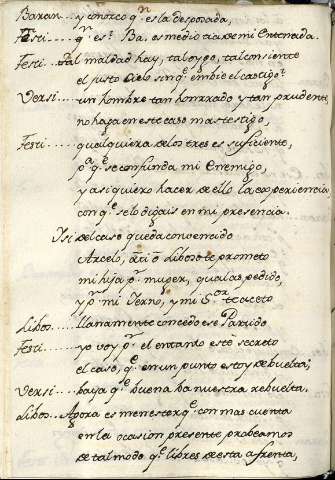 Baran.... y conozco q̃ es la desposada,
Festi.... q̃ es? Ba. es medio cia de mi Entenada.
Festi.. tal maldad hay, tal oygo, tal consiente
el justo cielo sin q̃ embie el castigo?
Versi.... un hombre tan honrrado y tan prudente,
no haga en este caso mas testigo,
Festi.... qualquiera delos tres es suficiente,
pª q̃ se confunda mi Enemigo,
y asi quiero hacer de ello la experiencia
con q̃ selo digais en mi presencia.
Y si del caso queda convencido
Arcelo, à ti ò Liboso te prometo
mi hija pʳ muger, qual as pedido,
y pʳ mi Yerno, y mi Sºʳ te aceto
Libos.... llanamente concedo ese Partido
Festi..... yo voy pʳ el entanto esté secreto
el caso, q̃ en un punto estoy de buelta;
Versi.... baya q̃ buena ba nuestra rebuelta.
Libos... Agora es menester q̃ con mas cuenta
en la ocasion presente probeamos
de tal modo q̃ libres de esta afrenta,